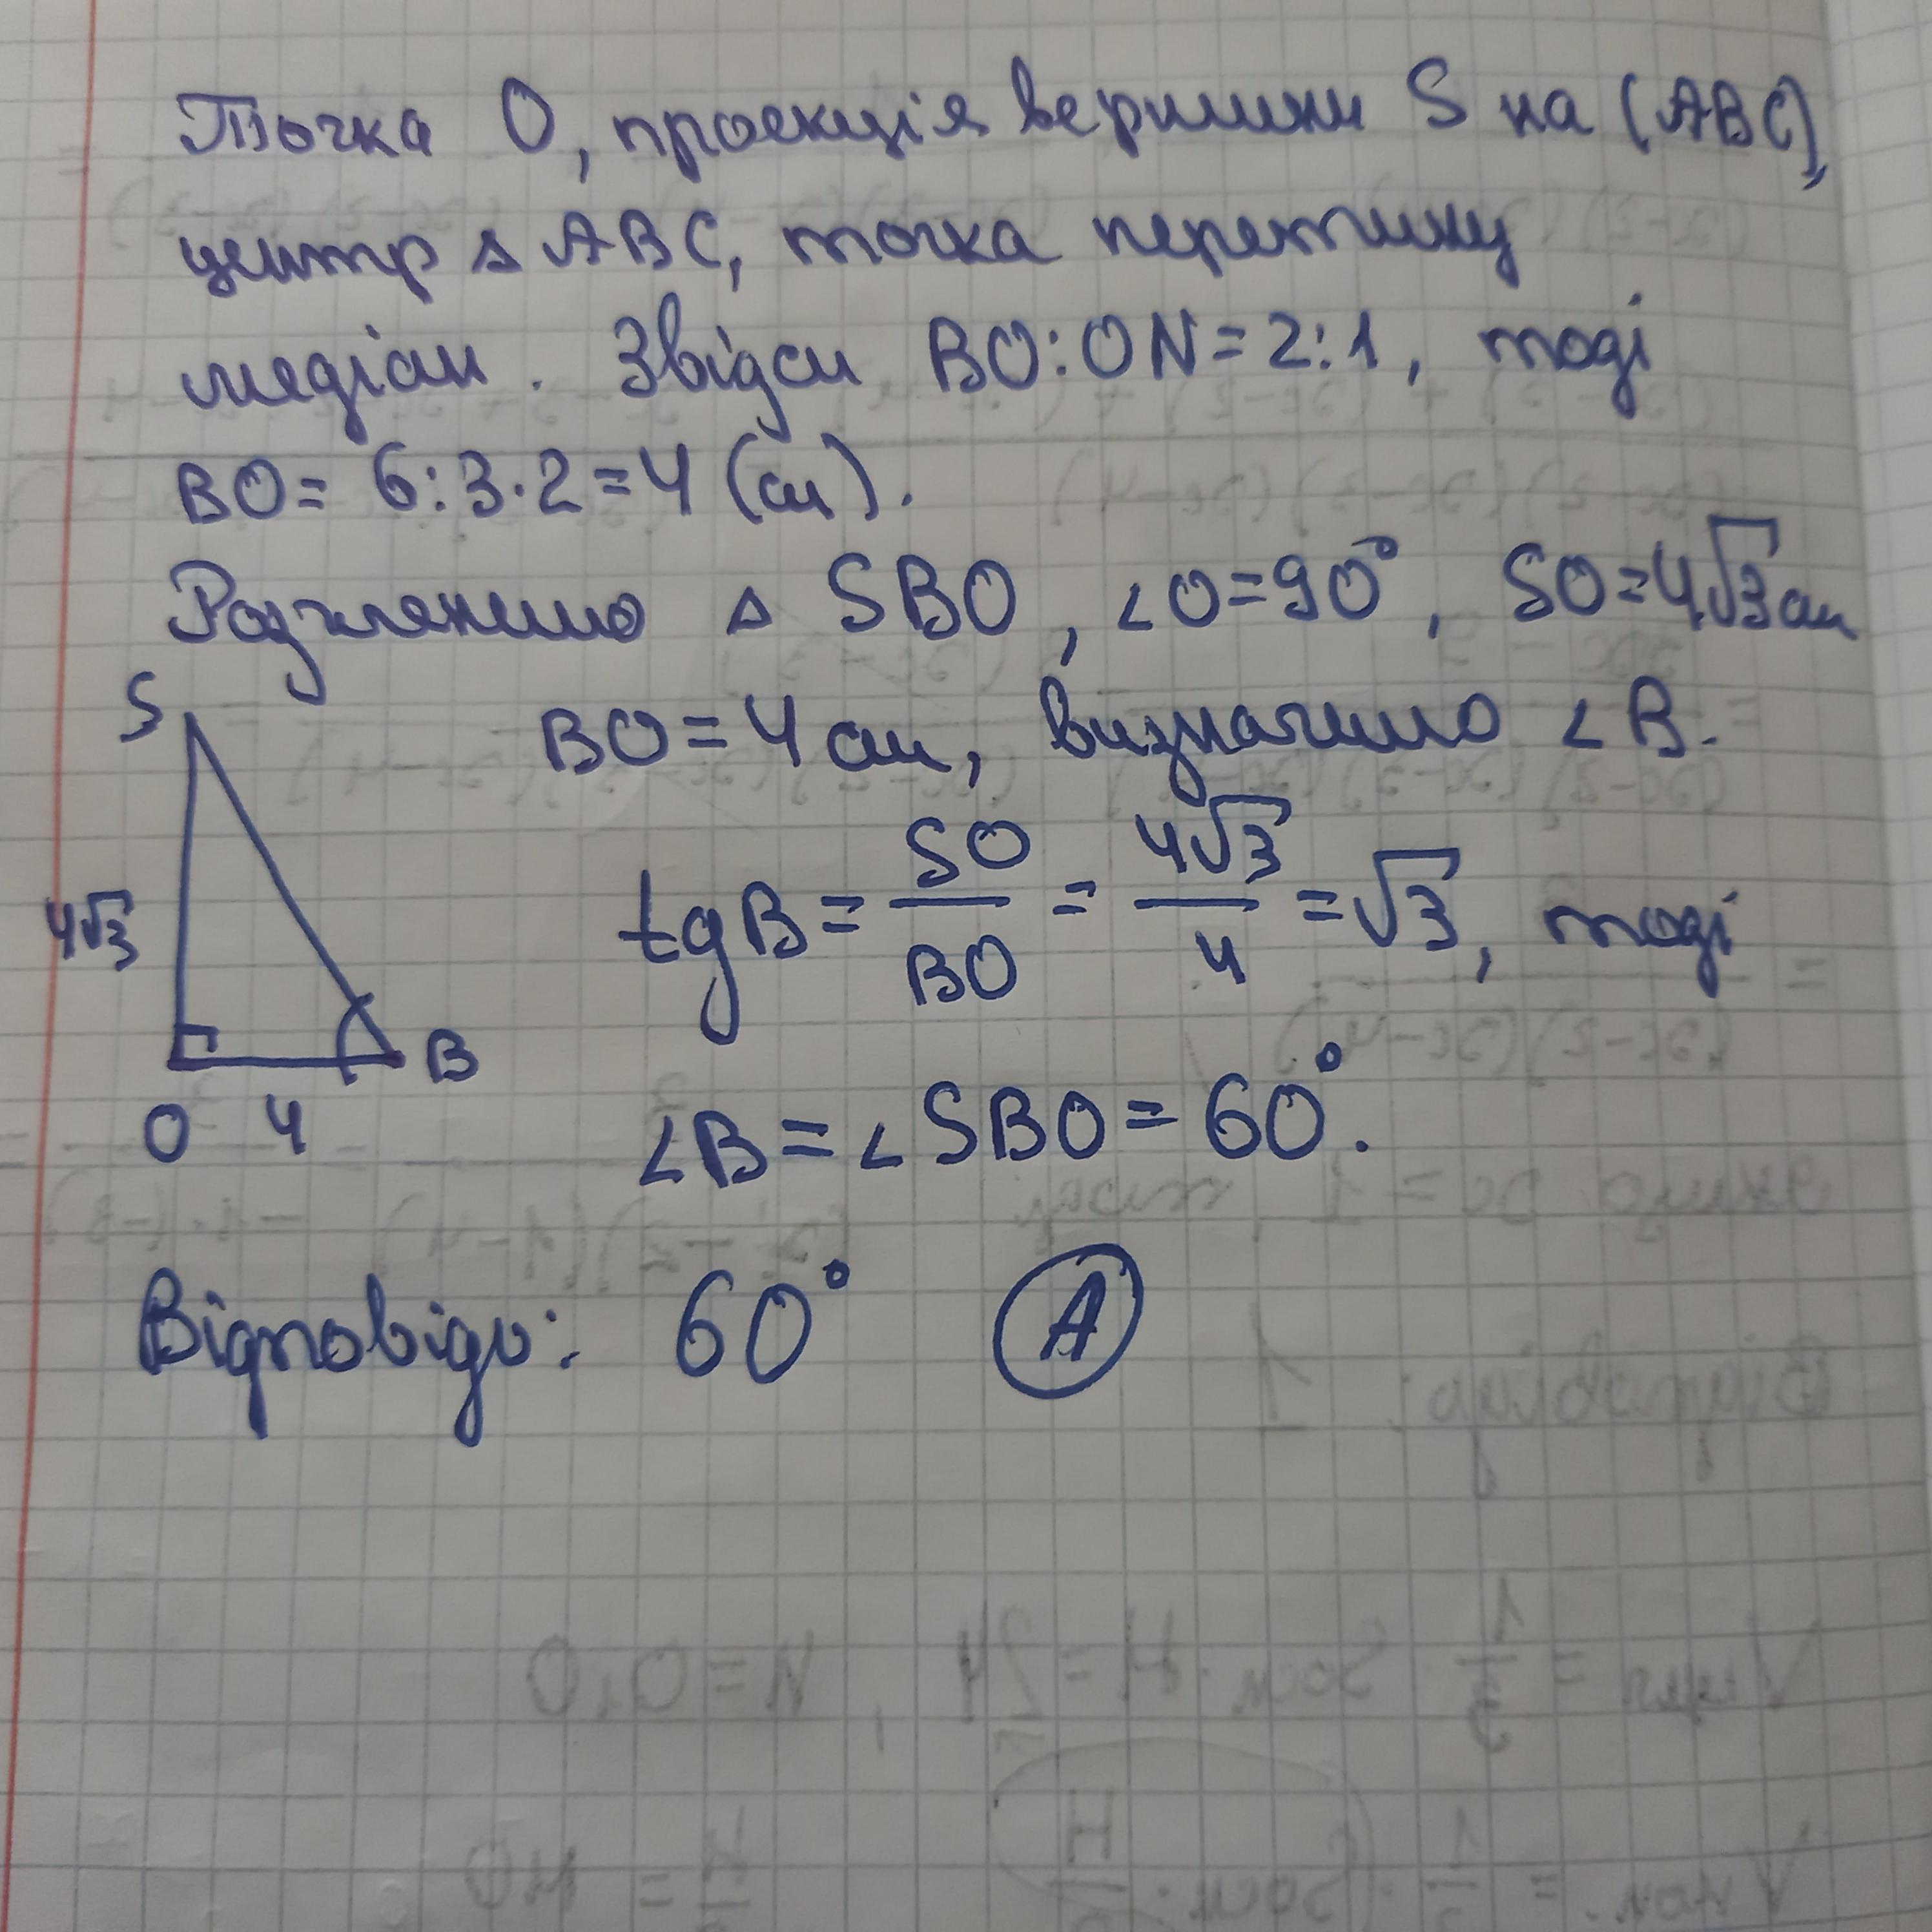 Точка O, проекція вершини S на (ABC),
центр △ ABC, точка перетину
медіан. Звідси BO:ON=2:1, тоді
BO= 6:3·2=4 (см).
Розглянемо △ SBO, ∠O=90°, SO=4√3 см
S
BO=4 см, визначимо ∠B.
tgB = SO/BO = 4√3/4 = √3, тоді
4√3
B
O 4
∠B = ∠SBO = 60°.
Відповідь: 60° A